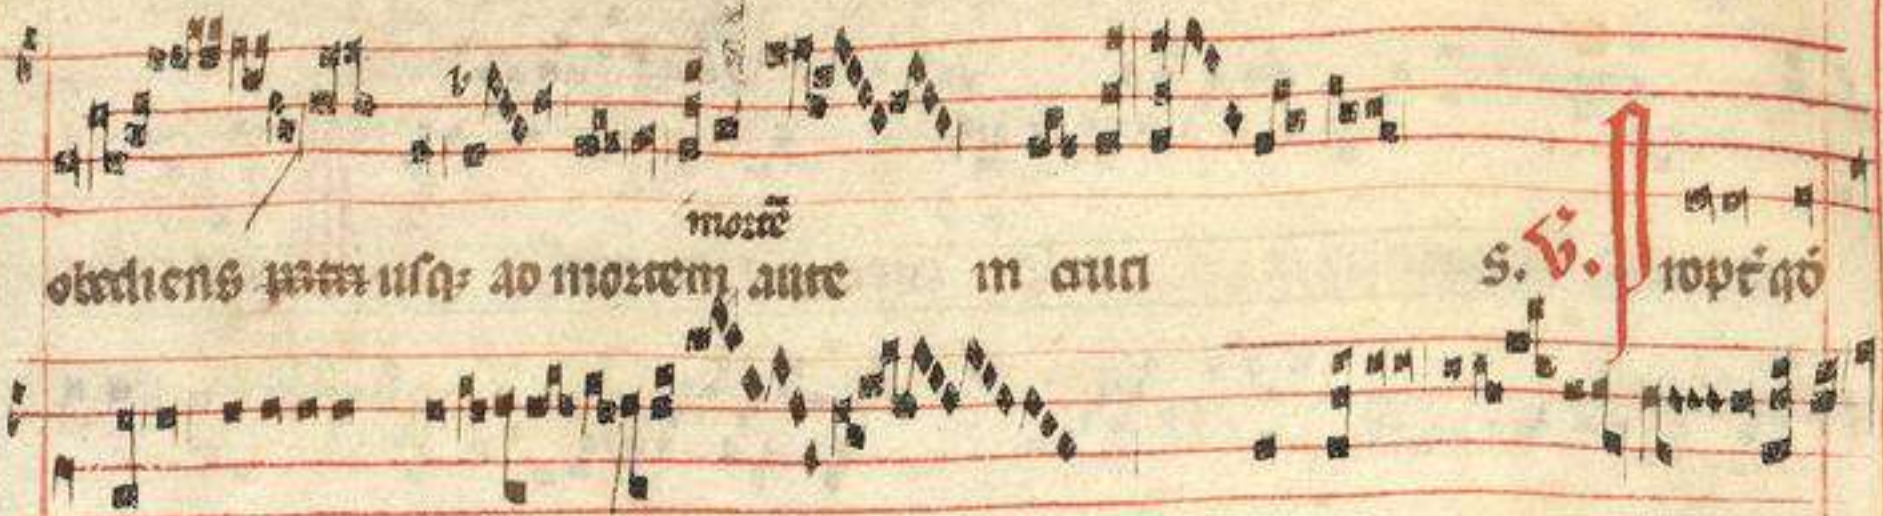 mortẽ
obediens patri usq; ad mortem aute in cruci s. V̄. Propt̃ qđ